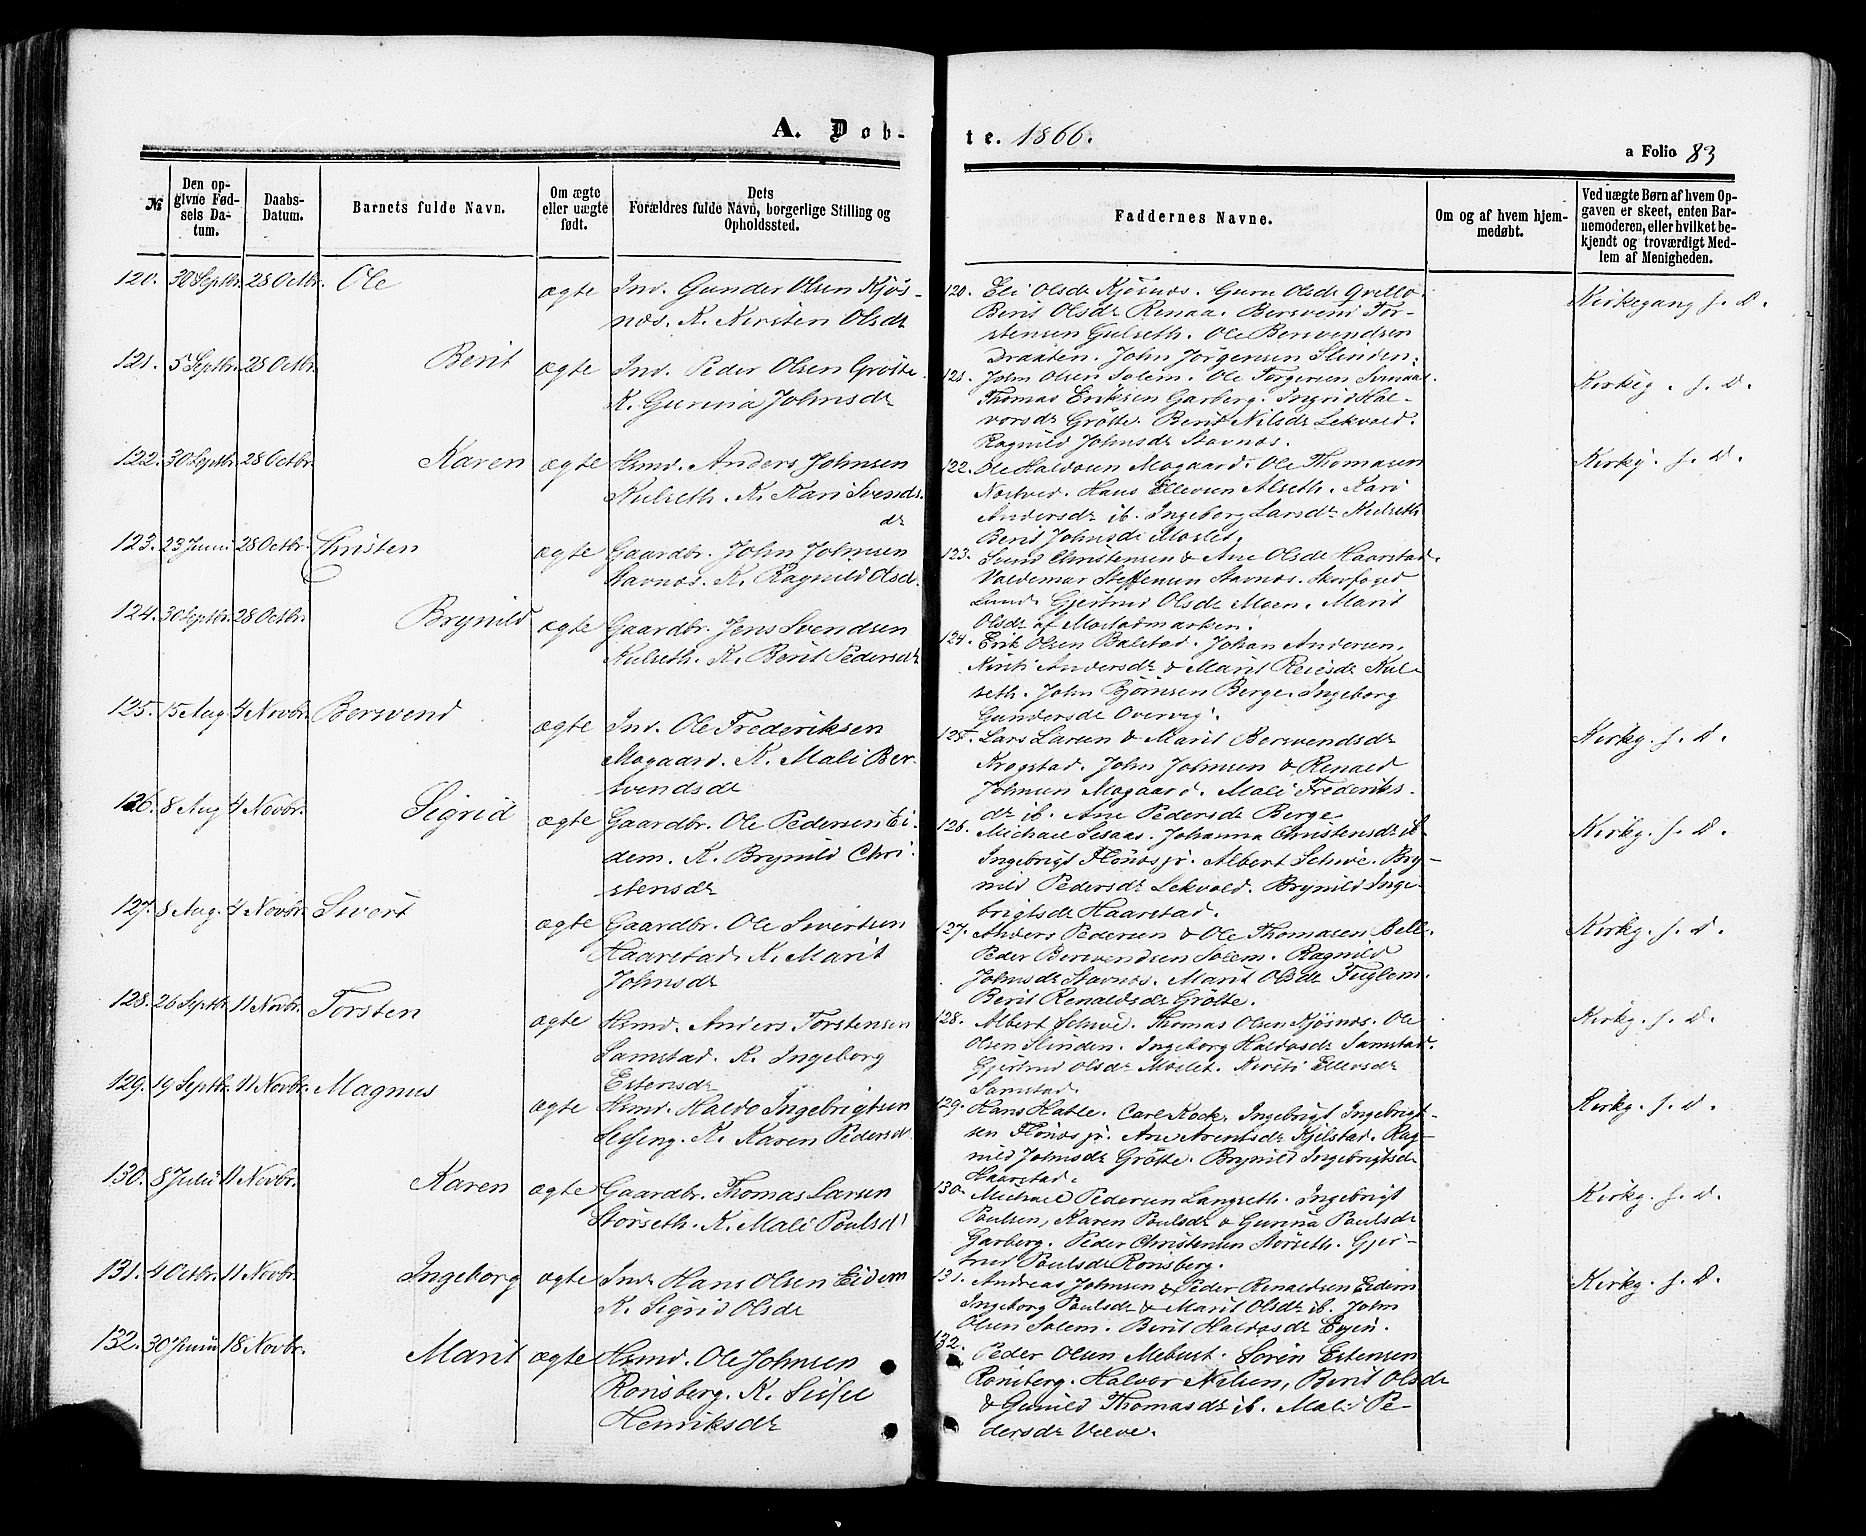 A. Døb-
te. 1866.
a Folio 83
№
Den op-
givne Fød-
sels Da-
tum.
Daabs-
Datum.
Barnets fulde Navn.
Om ægte
eller uægte
født.
Dets
Forældres fulde Navn, borgerlige Stilling og
Opholdssted.
Faddernes Navne.
Om og af hvem hjem-
medøbt.
Ved uægte Børn af hvem Op-
gaven er skeet, enten Bar-
nemoderen, eller hvilket be-
kjendt og troværdigt Med-
lem af Menigheden.
120. 30 Septbr. 28 Octbr. Ole ægte Ind. Gunder Olsen Kjös-
nös. K. Kirsten Olsdr
120. Eli Olsdr Kjösnös. Guru Olsdr Qvello.
Berit Olsdr Renaa. Bersvend Tor-
stensen Gulseth. Ole Bersvendsen
Draxten. John Jörgensen Slinden.
Kirkegang s. D.
121. 5 Septbr. 28 Octbr. Berit ægte Ind. Peder Olsen Grötte.
K. Gurina Johnsdr
121. John Olsen Solem. Ole Torgersen
Thomas Eriksen Garberg. Ingrid Hal-
vorsdr Grötte. Berit Nilsdr Lekvold.
Ragnild Johnsdr Stavnös.
Kirkeg. s. D.
122. 30 Septbr. 28 Octbr. Karen ægte Hsmd. Anders Johnsen
Kulseth. K. Kari Svends
dr
122. Ole Haldosen Mogaard. Ole Thomasen
Nostved. Hans Ellevsen Alseth. Kari
Andersdr ib. Ingeborg Larsdr Kulseth
Berit Johnsdr Moslet.
Kirkg. s. D.
123. 23 Juni 28 Octbr. Christen ægte Gaardbr. John Johnsen
Stavnös. K. Ragnild Olsd.
123. Svend Christensen & Ane Olsdr Haarstad.
Valdemar Steffensen Stavnös. Skovfoged
Lund. Gjertrud Olsdr Moen. Marit
Olsdr af Mostadmarken.
124. 30 Septbr. 28 Octbr. Brynild ægte Gaardbr. Jens Svendsen
Kulseth. K. Berit Pedersdr
124. Erik Olsen Balstad. Johan Andersen,
Kirsti Andersdr & Marit Reiersdr Kul-
seth. John Björnsen Berge. Ingeborg
Gundersdr Overvig.
125. 15 Aug. 4 Novbr. Bersvend ægte Ind. Ole Frederiksen
Mogaard. K. Mali Ber-
svendsdr
125. Lars Larsen & Marit Bersvendsdr
Krogstad. John Johnsen & Renald
Johnsen Mogaard. Mali Frederiks-
dr ib. Ane Pedersdr Berge.
Kirkg. s. D.
126. 8 Aug 4 Novbr. Sigrid ægte Gaardbr. Ole Pedersen Ei-
dem. K. Brynild Chri-
stensdr
126. Michael Sesaas. Johanna Christensdr ib
Ingebrigt Flönös jr. Albert Schive. Bry-
nild Pedersdr Lekvold. Brynild Inge-
brigtsdr Haarstad.
Kirkg. s. D.
127. 8 Aug. 4 Novbr. Sivert ægte Gaardbr. Ole Sivertsen
Haarstad. K. Marit
Johnsdr
127. Anders Pedersen & Ole Thomasen Bell.
Peder Bersvendsen Solem. Ragnild
Johnsdr Stavnös. Marit Olsdr Fuglem.
Berit Renaldsdr Grötte.
Kirkg. s. D.
128. 26 Septbr. 11 Novbr. Torsten ægte Hsmd. Anders Torstensen
Samstad. K. Ingeborg
Estensdr
128. Albert Schive. Thomas Olsen Kjösnös. Ole
Olsen Slinden. Ingeborg Haldosdr Samstad.
Gjertrud Olsdr Moslet. Kirsti Ellevsdr
Samstad.
Kirkg. s. D.
129. 19 Septbr. 11 Novbr. Magnus ægte Hsmd. Haldo Ingebrigtsen
Selsing. K. Karen Pedersdr
129. Hans Hatle. Carl Kock. Ingebrigt Ingebrigt-
sen Flönös jr. Ane Arentsdr Kjelstad. Rag-
nild Johnsdr Grötte. Brynild Ingebrigtsdr
Haarstad.
Kirkg. s. D.
130. 8 Julii 11 Novbr. Karen ægte Gaardbr. Thomas Larsen
Störseth. K. Mali Poulsd
130. Michael Pedersen Langseth. Ingebrigt
Poulsen, Karen Poulsdr & Gurina Poulsdr
Garberg. Peder Christensen Störseth. Gjer-
trud Poulsdr Rönsberg.
Kirkg. s. D.
131. 4 Octbr. 11 Novbr. Ingeborg ægte Ind. Hans Olsen Eidem
K. Sigrid Olsdr
131. Andreas Johnsen & Peder Renaldsen Eidem
Ingeborg Poulsdr & Marit Olsdr ib. John
Olsen Solem. Berit Haldosdr Evjen.
Kirkg. s. D.
132. 30 Junii 18 Novbr. Marit ægte Hsmd. Ole Johnsen
Rönsberg. K. Sissel
Henriksdr
132. Peder Olsen Mebust. Sören Estensen
Rönsberg. Halvor Nilsen, Berit Olsdr
& Gunild Thomasdr ib. Mali Pe-
dersdr Væve.